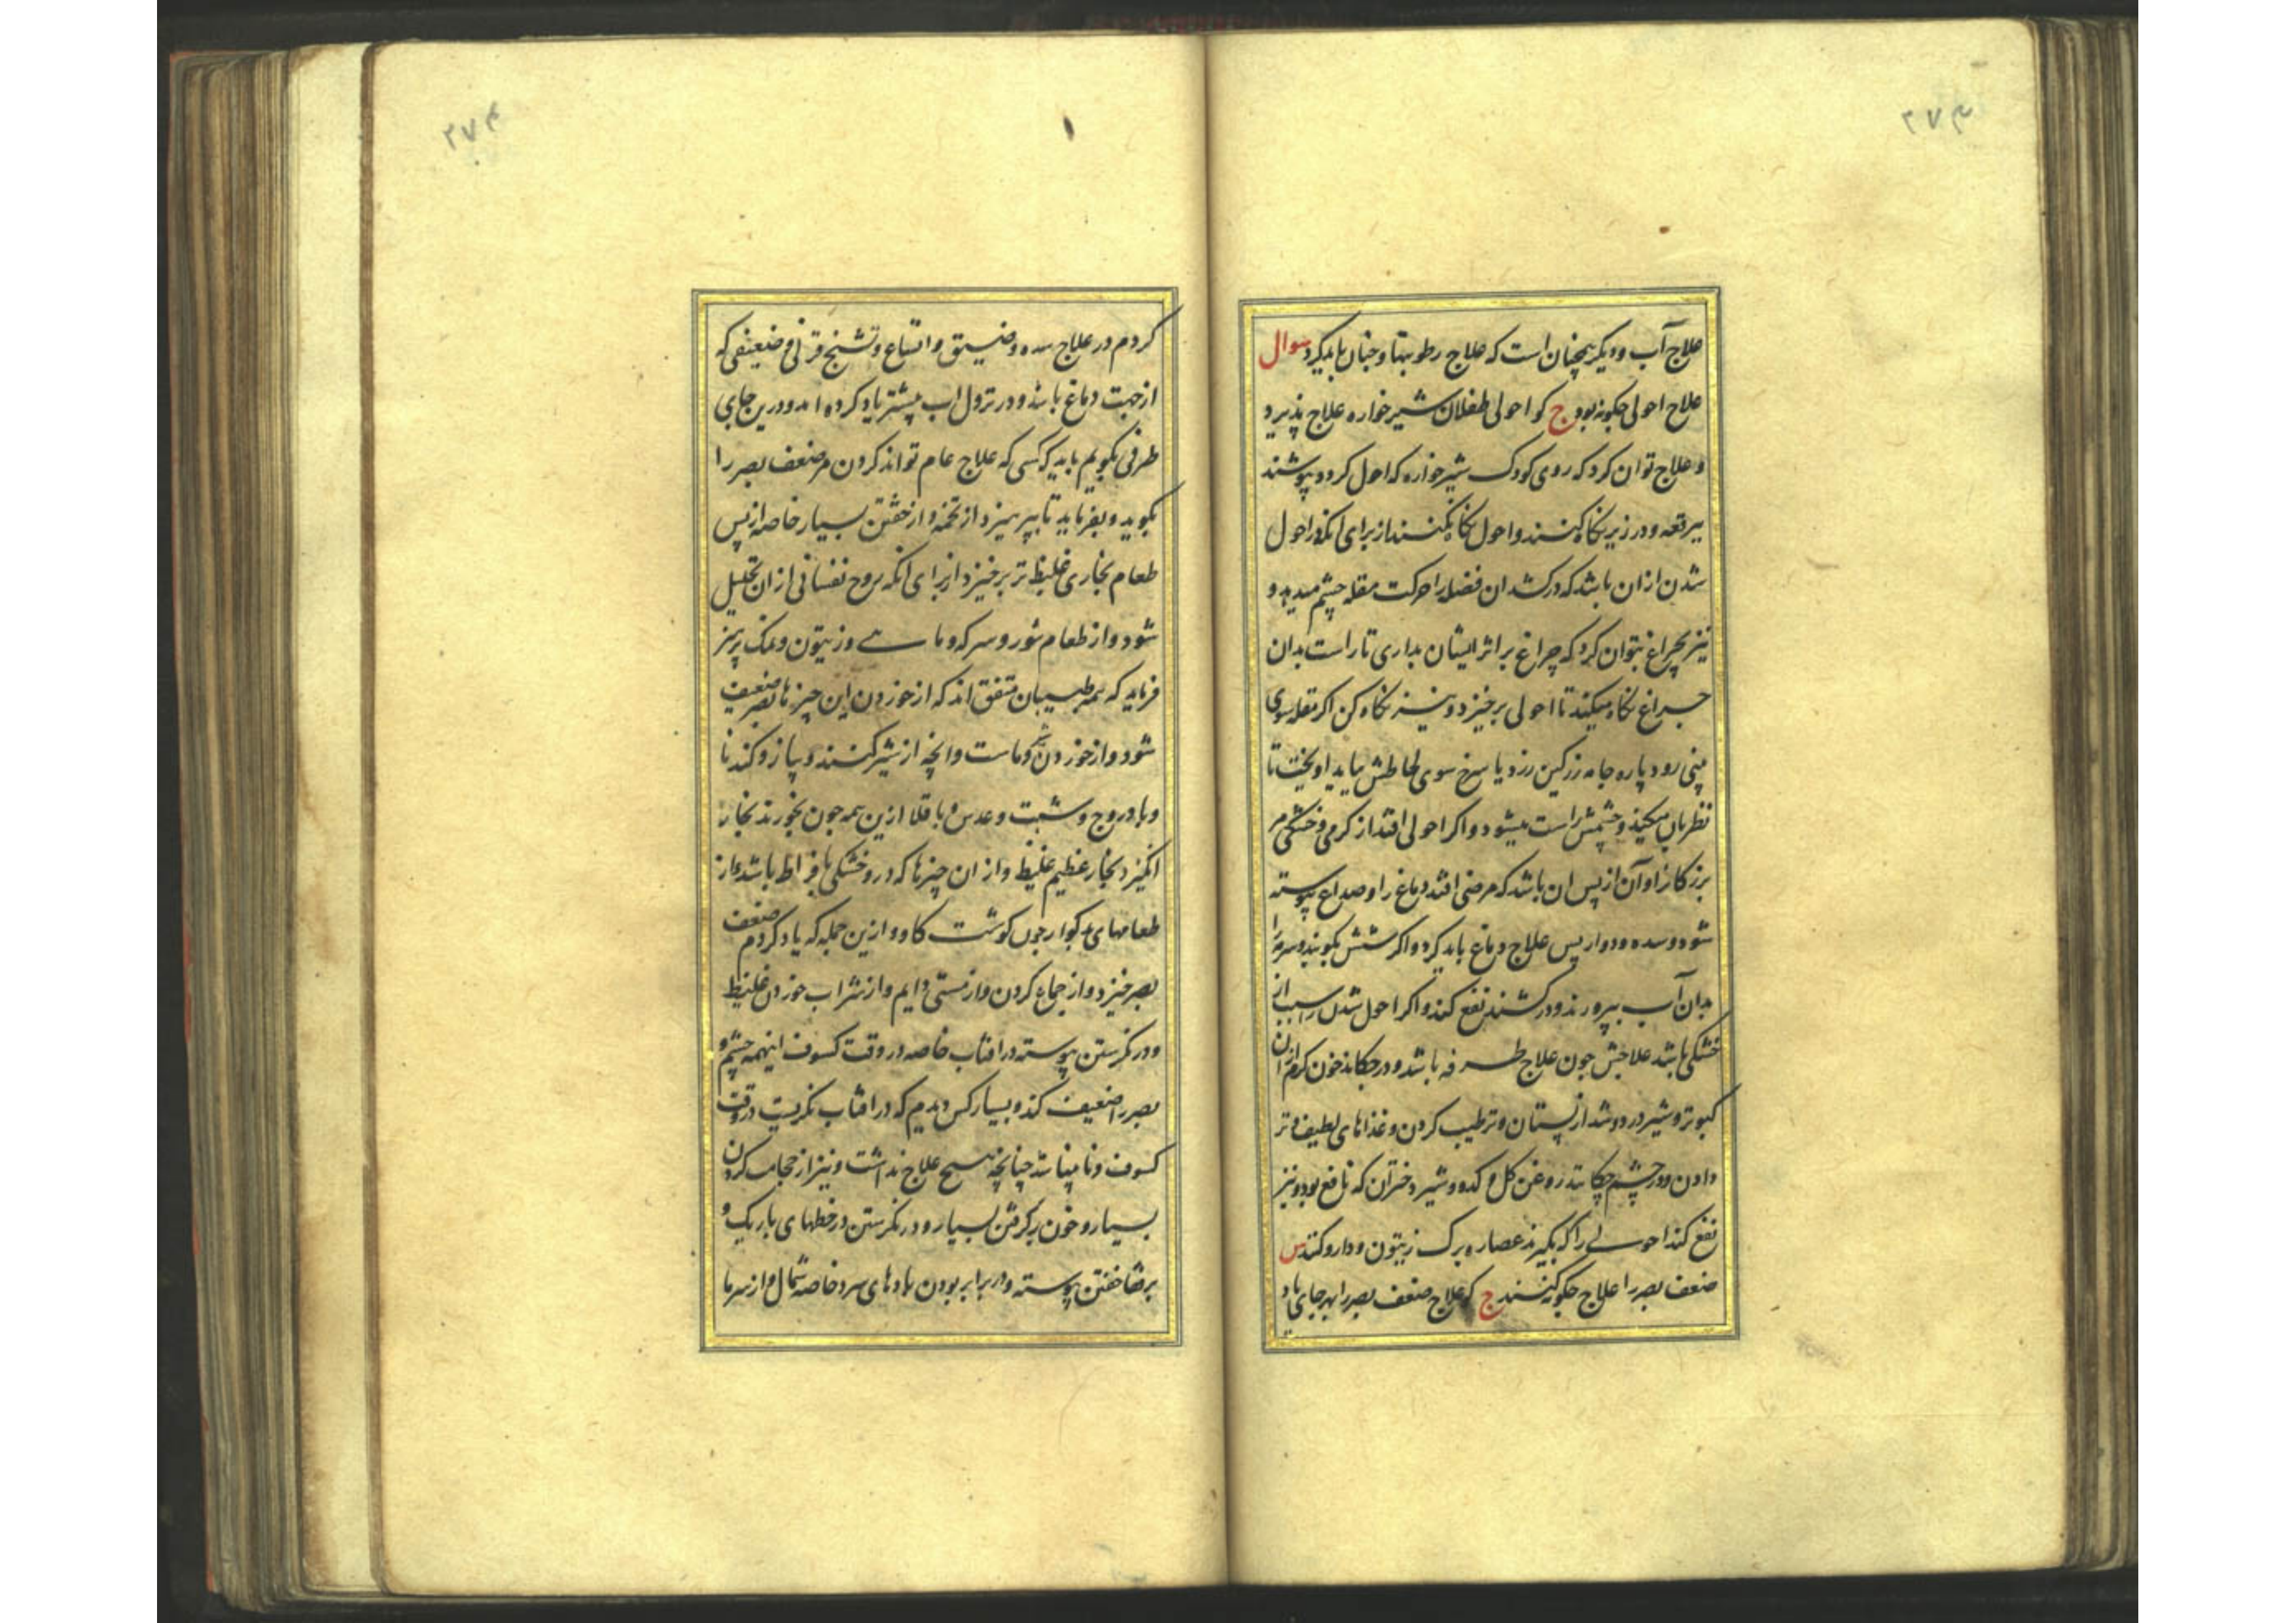 علاج آب ودیگر همچنان است که علاج رطوبتها وجنان باید کرد سوال
علاج احولی جکونه بود ج کو احولی طفلان شیرخواره علاج پذیرد
وعلاج توان کرد که روی کودک شیرخواره که احول کردد بپوشند
ببرقعه ودر زیر نکاه کنند واحول نکاه نکنند از برای انکه در احول
شدن ازان باشد که درکشد ان فضله را حرکت مقله چشم میدید و
نیز بچراغ بتوان کرد که چراغ بر اثر ایشان بداری تا راست بدان
چراغ نکاه میکند تا احولی برخیزد ونیز نکاه کن اکر مقله سوی
بینی رود پاره جامه رنکین زرد یا سرخ سوی لحاظش بباید اویخت تا
نظر بان میکند وچشمش راست میشود واکر احولی افتد از کرمی وخشکی مر
بزرکانرا وآن از پس ان باشد که مرضی افتد دماغ را وصداع پیوسته
شود وسده ودوار پس علاج دماغ باید کرد واکر شش بکوبند وسرمه را
بدان آب بپرورند ودر کشند نفع کند واکر احول شدن را سبب از
خشکی باشد علاجش جون علاج طرفه باشد ودر چکانند خون کرم ازان
کبوتر وشیر در دوشد از پستان وترطیب کردن وغذاهای لطیف وتر
دادن ودر چشم چکانند روغن کل و کدو وشیر دختران که نافع بود ونیز
نفع کند احولی را که بکیرند عصاره برک زیتون ودارو کنند س
ضعف بصر را علاج جکونه کنند ج کو علاج ضعف بصر را بهر جای یاد
کردم در علاج سده وضیق واتساع وتشنج قرنی وضعیفی که
از جهت دماغ باشد ودر نزول اب پیشتر یاد کرده امد ودرین جای
طرفی بکویم باید که کسی که علاج عام تواند کردن مر ضعف بصر را
بکوید وبفرماید تا بپرهیزد از تخمه واز خفتن بسیار خاصه از پس
طعام بخاری غلیظ تر برخیزد از برای انکه روح نفسانی ازان تحلیل
شود واز طعام شور وسرکه وماهی وزیتون ونمک پرهیز
فرماید که همه طبیبان متفق اند که از خوردن این چیزها بصر ضعیف
شود واز خوردن وماست وانچه از شیر کنند وپیاز وکندنا
وبادروج وشبت وعدس وباقلا ازین همه جون بخورند بخار
انکیزد بخار عظیم غلیظ واز ان چیزها که درو خشکی بافراط باشد واز
طعامهای بدکوار جون کوشت کاو وازین جمله که یاد کردم ضعف
بصر خیزد واز جماع کردن واز مستی دایم واز شراب خوردن غلیظ
ودر نکرستن پیوسته در افتاب خاصه در وقت کسوف اینهمه چشم و
بصر را ضعیف کند وبسیار کس دیدم که در افتاب نکریست در وقت
کسوف ونابینا شد چنانچه هیچ علاج نداشت ونیز از حجامت کردن
بسیار وخون برکرفتن بسیار ودر نکرستن در خطهای باریک و
برقفا خفتن پیوسته ودر برابر بودن بادهای سرد خاصه شمال واز سرما